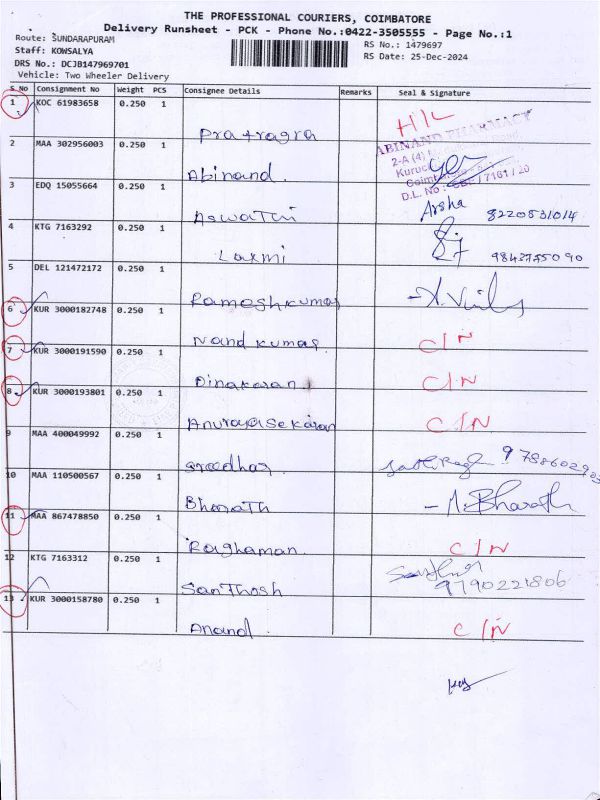 THE PROFESSIONAL COURIERS, COIMBATORE
Delivery Runsheet - PCK - Phone No.:0422-3505555 - Page No.:1
Route: SUNDARAPURAM
RS No.: 1479697
Staff: KOWSALYA
RS Date: 25-Dec-2024
DRS No.: DCJB147969701
Vehicle: Two Wheeler Delivery
S No Consignment No Weight PCS Consignee Details Remarks Seal & Signature
1 KOC 61983658 0.250 1
ABINAND PHARMACY
2 MAA 302956003 0.250 1 Abinand
3 EDQ 15055664 0.250 1 Aswathi Arsha
4 KTG 7163292 0.250 1 Laxmi
5 DEL 121472172 0.250 1 Rameshkumar
6 KUR 3000182748 0.250 1 Nand kumar C/N
7 KUR 3000191590 0.250 1 Dinakaran C/N
8 KUR 3000193801 0.250 1 C/N
9 MAA 400049992 0.250 1 Sreedhar
10 MAA 110500567 0.250 1 Bharath Bharath
11 MAA 867478850 0.250 1 Raghaman C/N
12 KTG 7163312 0.250 1 Santhosh 9790221806
13 KUR 3000158780 0.250 1 Anand C/N